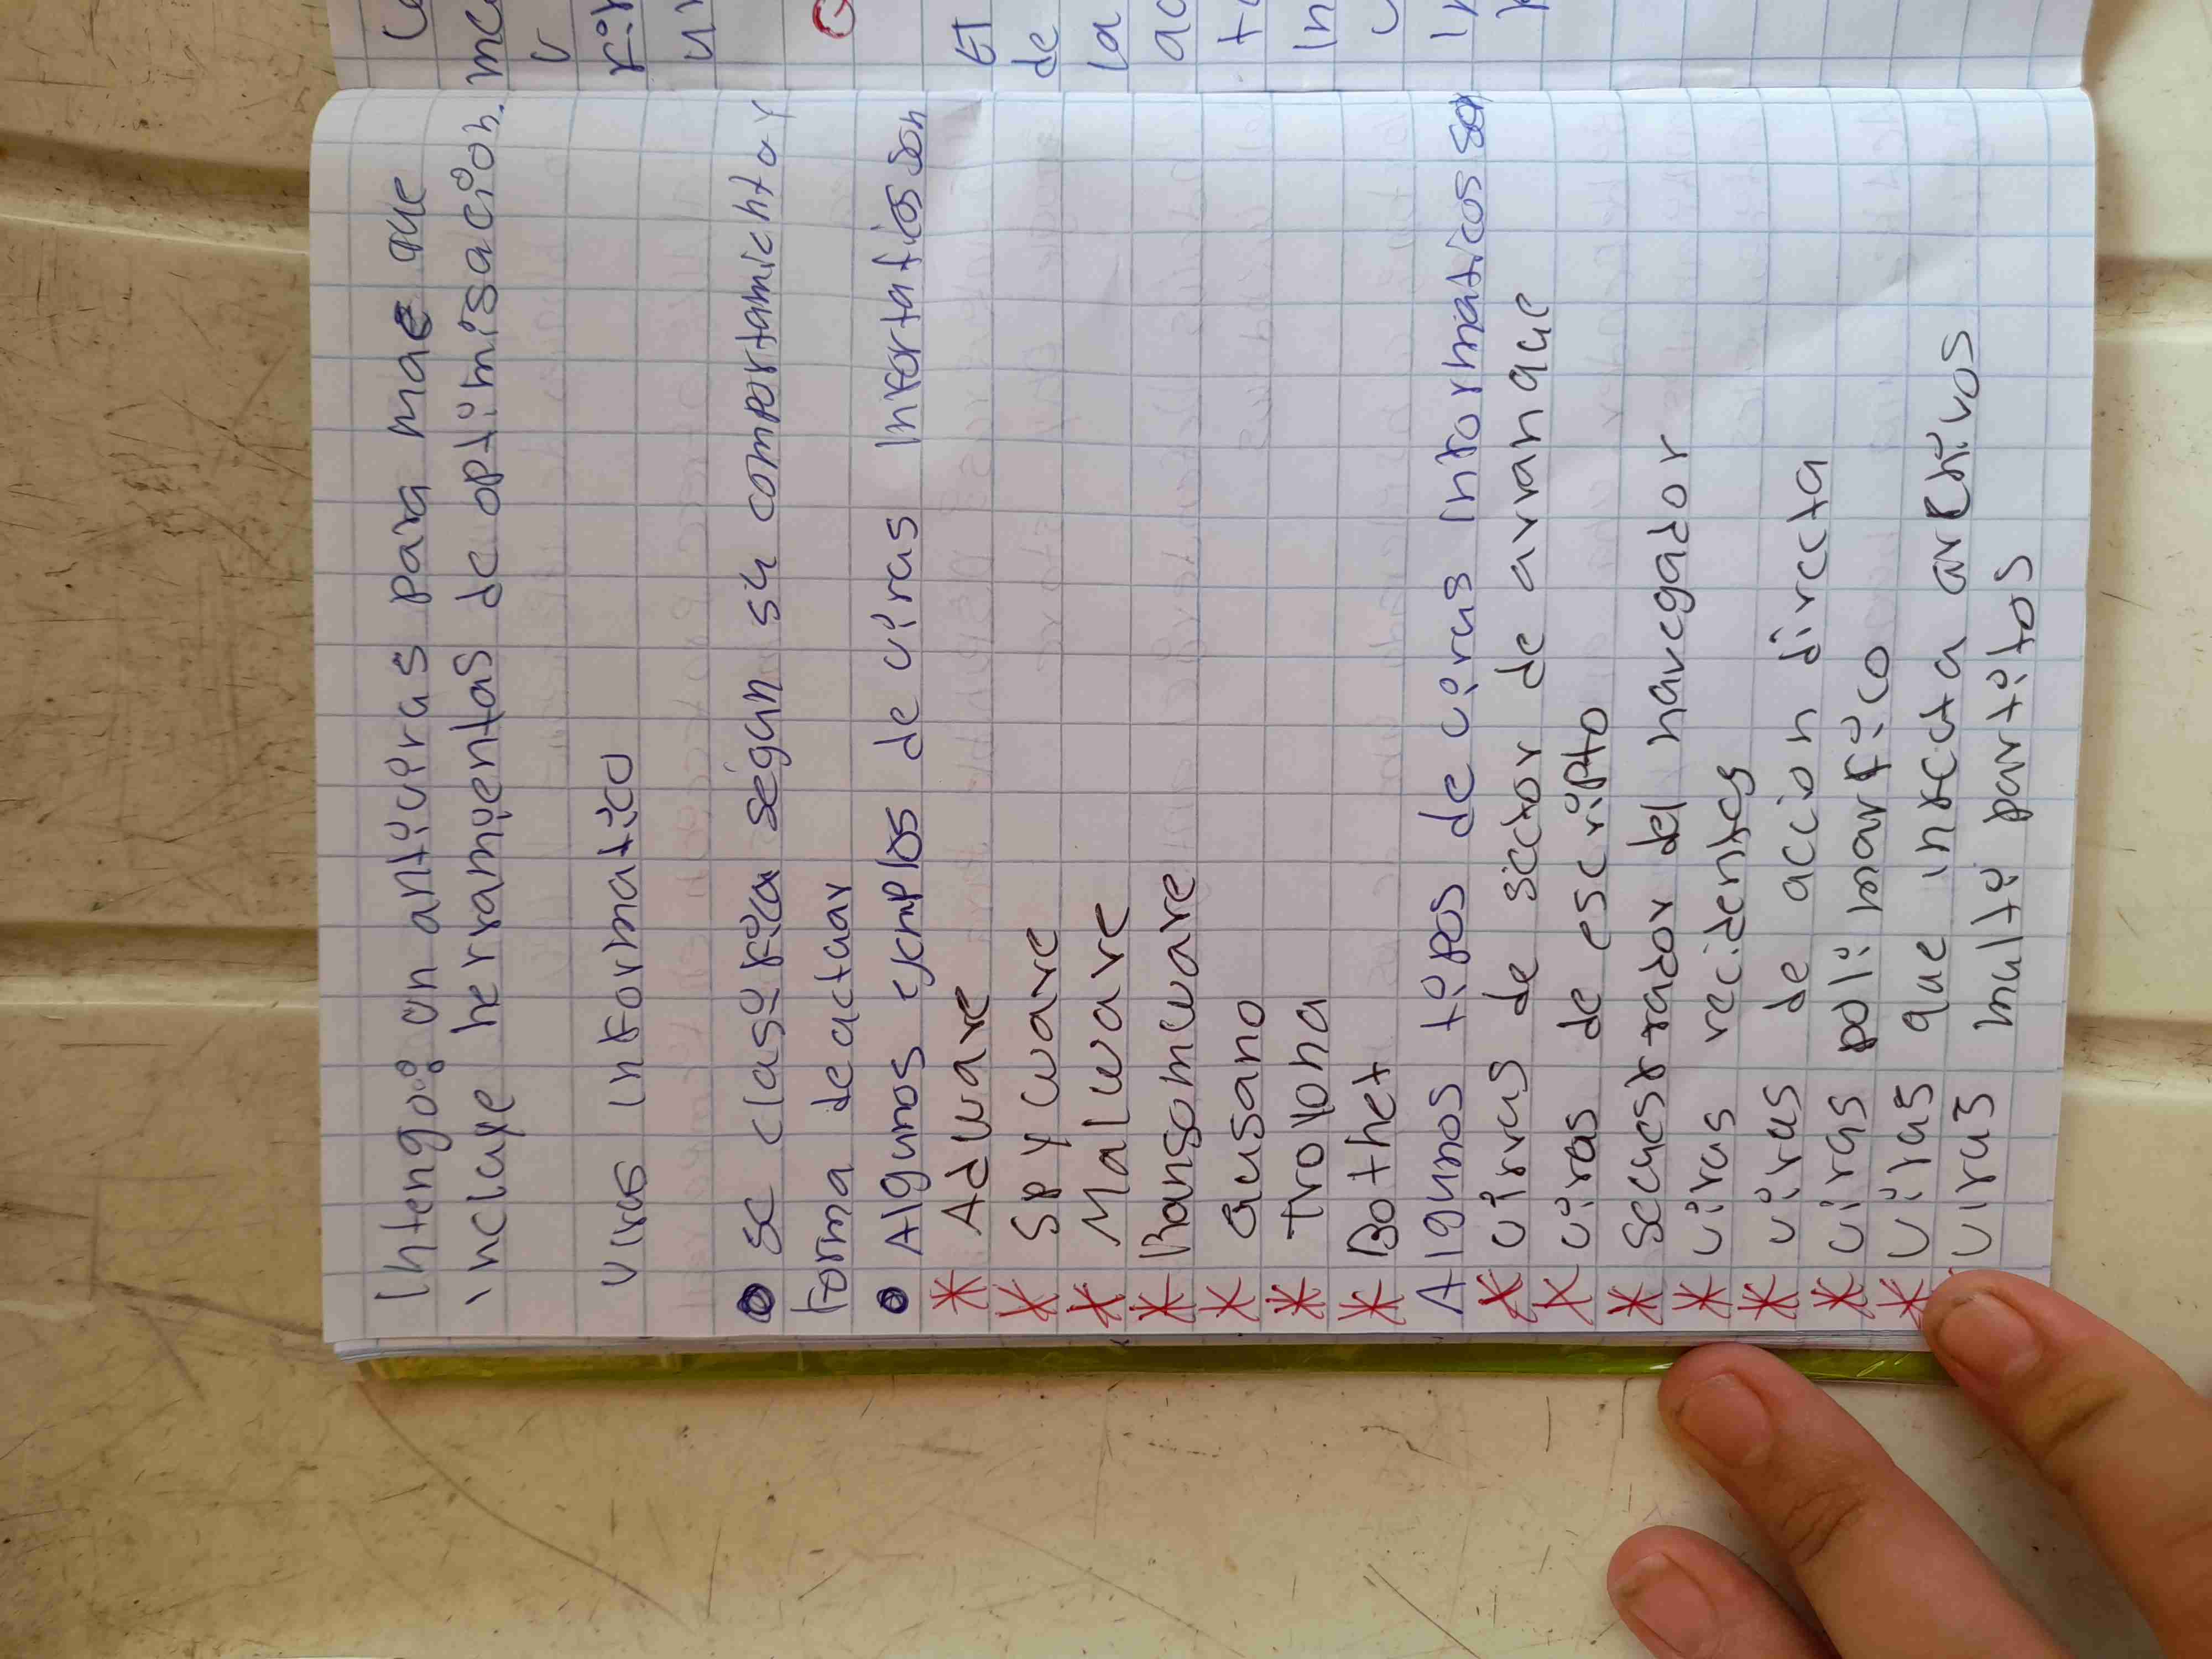 Intengoo un antivirus para mac que
incluye herramientas de optimisación.
virus informatico
se clasifica ségun su comportamiento y
forma de actuar
Algunos ejemplos de virus infortaticos son
* Adware
* spyware
* Malware
* Ransomware
* Gusano
* troyona
* Bothet
Algunos tipos de virus informaticos son
* virus de sector de arranque
* virus de escripto
* secuestrador del navegador
* virus recidentes
* virus de accion directa
* virus poli marfico
* virus que infecta archivos
virus multi partitos